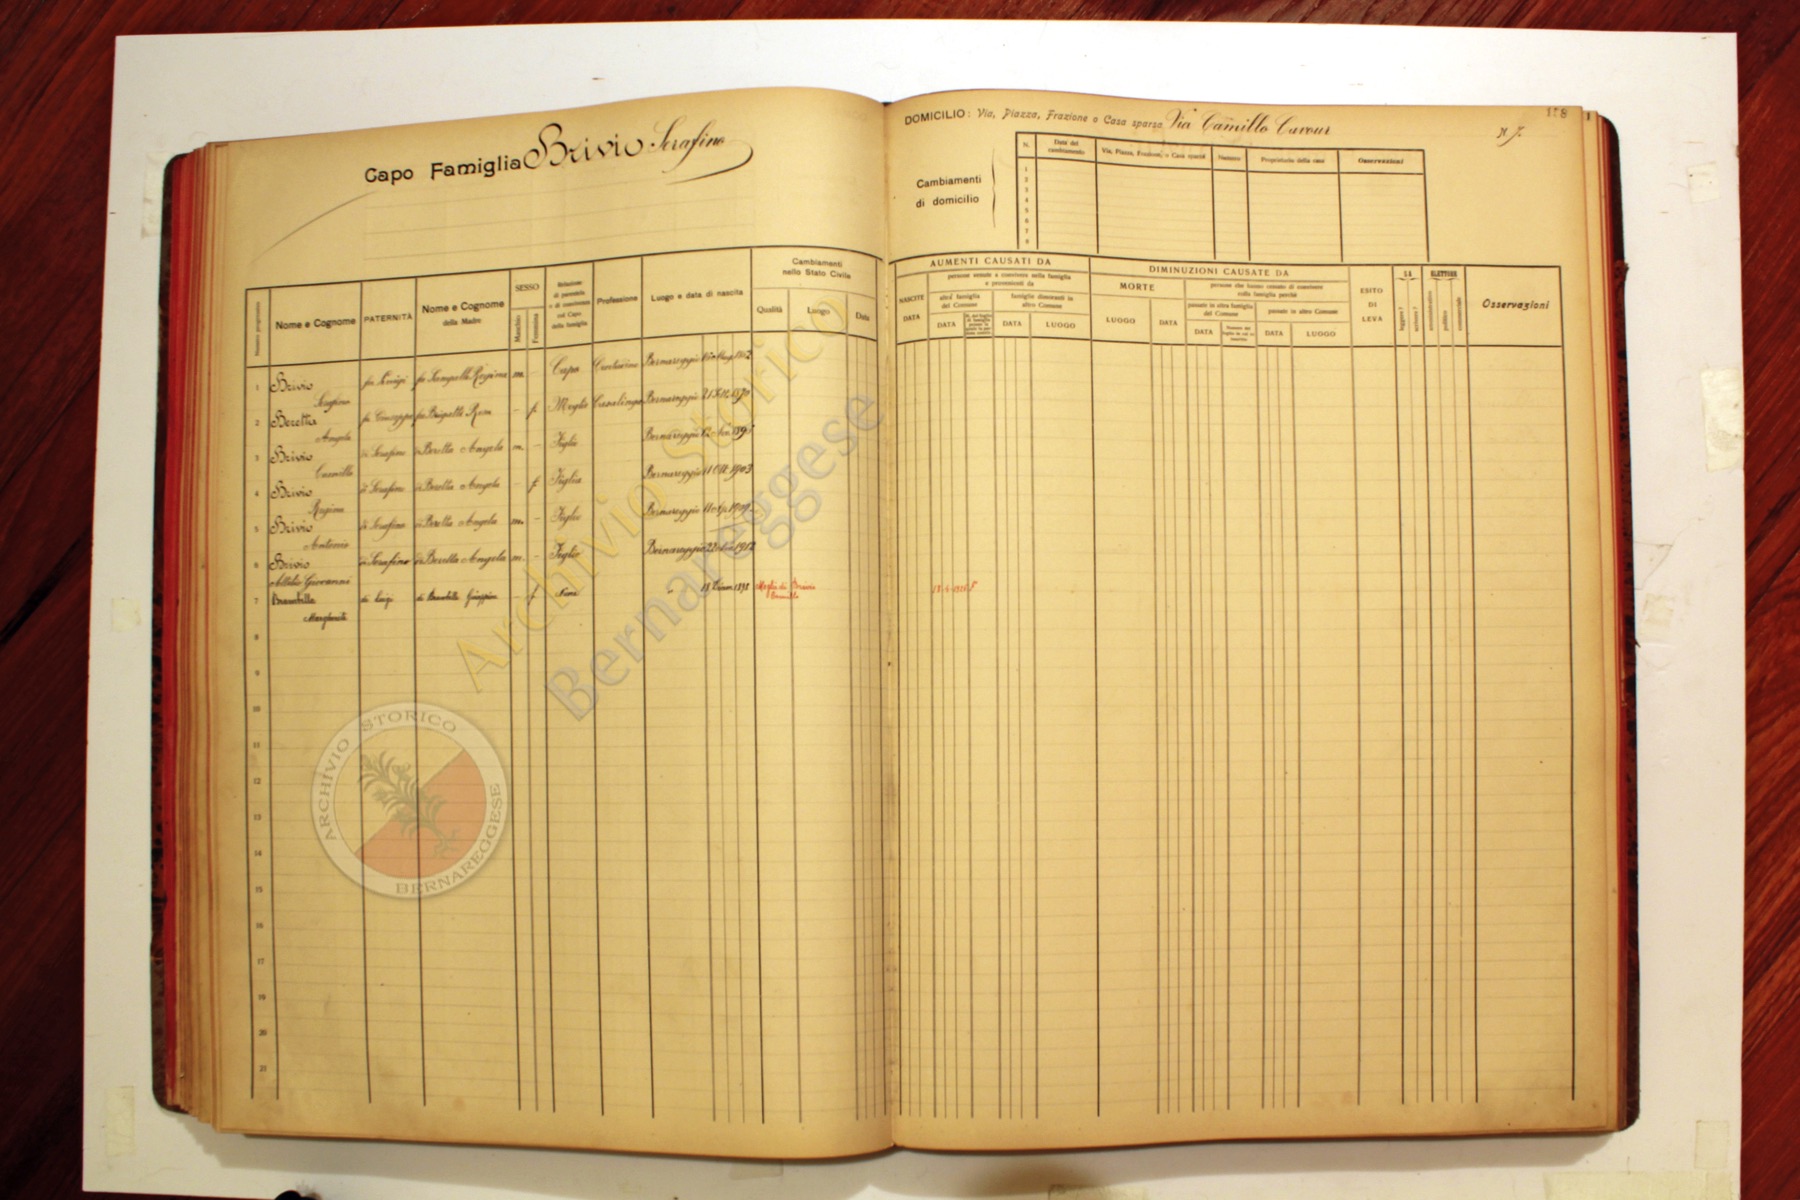 Capo Famiglia Brivio Serafino
DOMICILIO: Via, Piazza, Frazione o Casa sparsa Via Camillo Cavour
N. 7.
158
Cambiamenti di domicilio
N. Data del cambiamento Via, Piazza, Frazione, o Casa sparsa Numero Proprietario della casa Osservazioni
1
2
3
4
5
6
7
8
Numero progressivo
Nome e Cognome
PATERNITÀ
Nome e Cognome della Madre
SESSO
Maschio
Femmina
Relazione di parentela o di convivenza col Capo della famiglia
Professione
Luogo e data di nascita
Cambiamenti nello Stato Civile
Qualità Luogo Data
AUMENTI CAUSATI DA
NASCITE
DATA
persone venute a convivere nella famiglia e provenienti da
altra famiglia del Comune
DATA
famiglie dimoranti in altro Comune
DATA LUOGO
DIMINUZIONI CAUSATE DA
MORTE
LUOGO DATA
persone che hanno cessato di convivere colla famiglia perchè
passate in altra famiglia del Comune
DATA
passate in altro Comune
DATA LUOGO
ESITO DI LEVA
ELETTORE
amministrativo
politico
commerciale
Osservazioni
1 Brivio Serafino fu Luigi fu Regina m. - Capo Contadino Bernareggio 1862
2 Beretta Angela fu Giuseppe fu Rosa - f. Moglie Casalinga Bernareggio 1870
3 Brivio Camillo di Serafino di Beretta Angela m. - Figlio Bernareggio 1895
4 Brivio Regina di Serafino di Beretta Angela - f. Figlia Bernareggio 11 Ott. 1903
5 Brivio Antonio di Serafino di Beretta Angela m. - Figlio Bernareggio 1909
6 Brivio Attilio Giovanni di Serafino di Beretta Angela m. - Figlio Bernareggio 22 1912
7 Brambilla Margherita di Luigi di Brambilla Giuseppina - f. Nuora " 1898 Moglie di Brivio Camillo
8
9
10
11
12
13
14
15
16
17
18
19
20
21
Archivio Storico
Bernareggese
ARCHIVIO STORICO
BERNAREGGESE